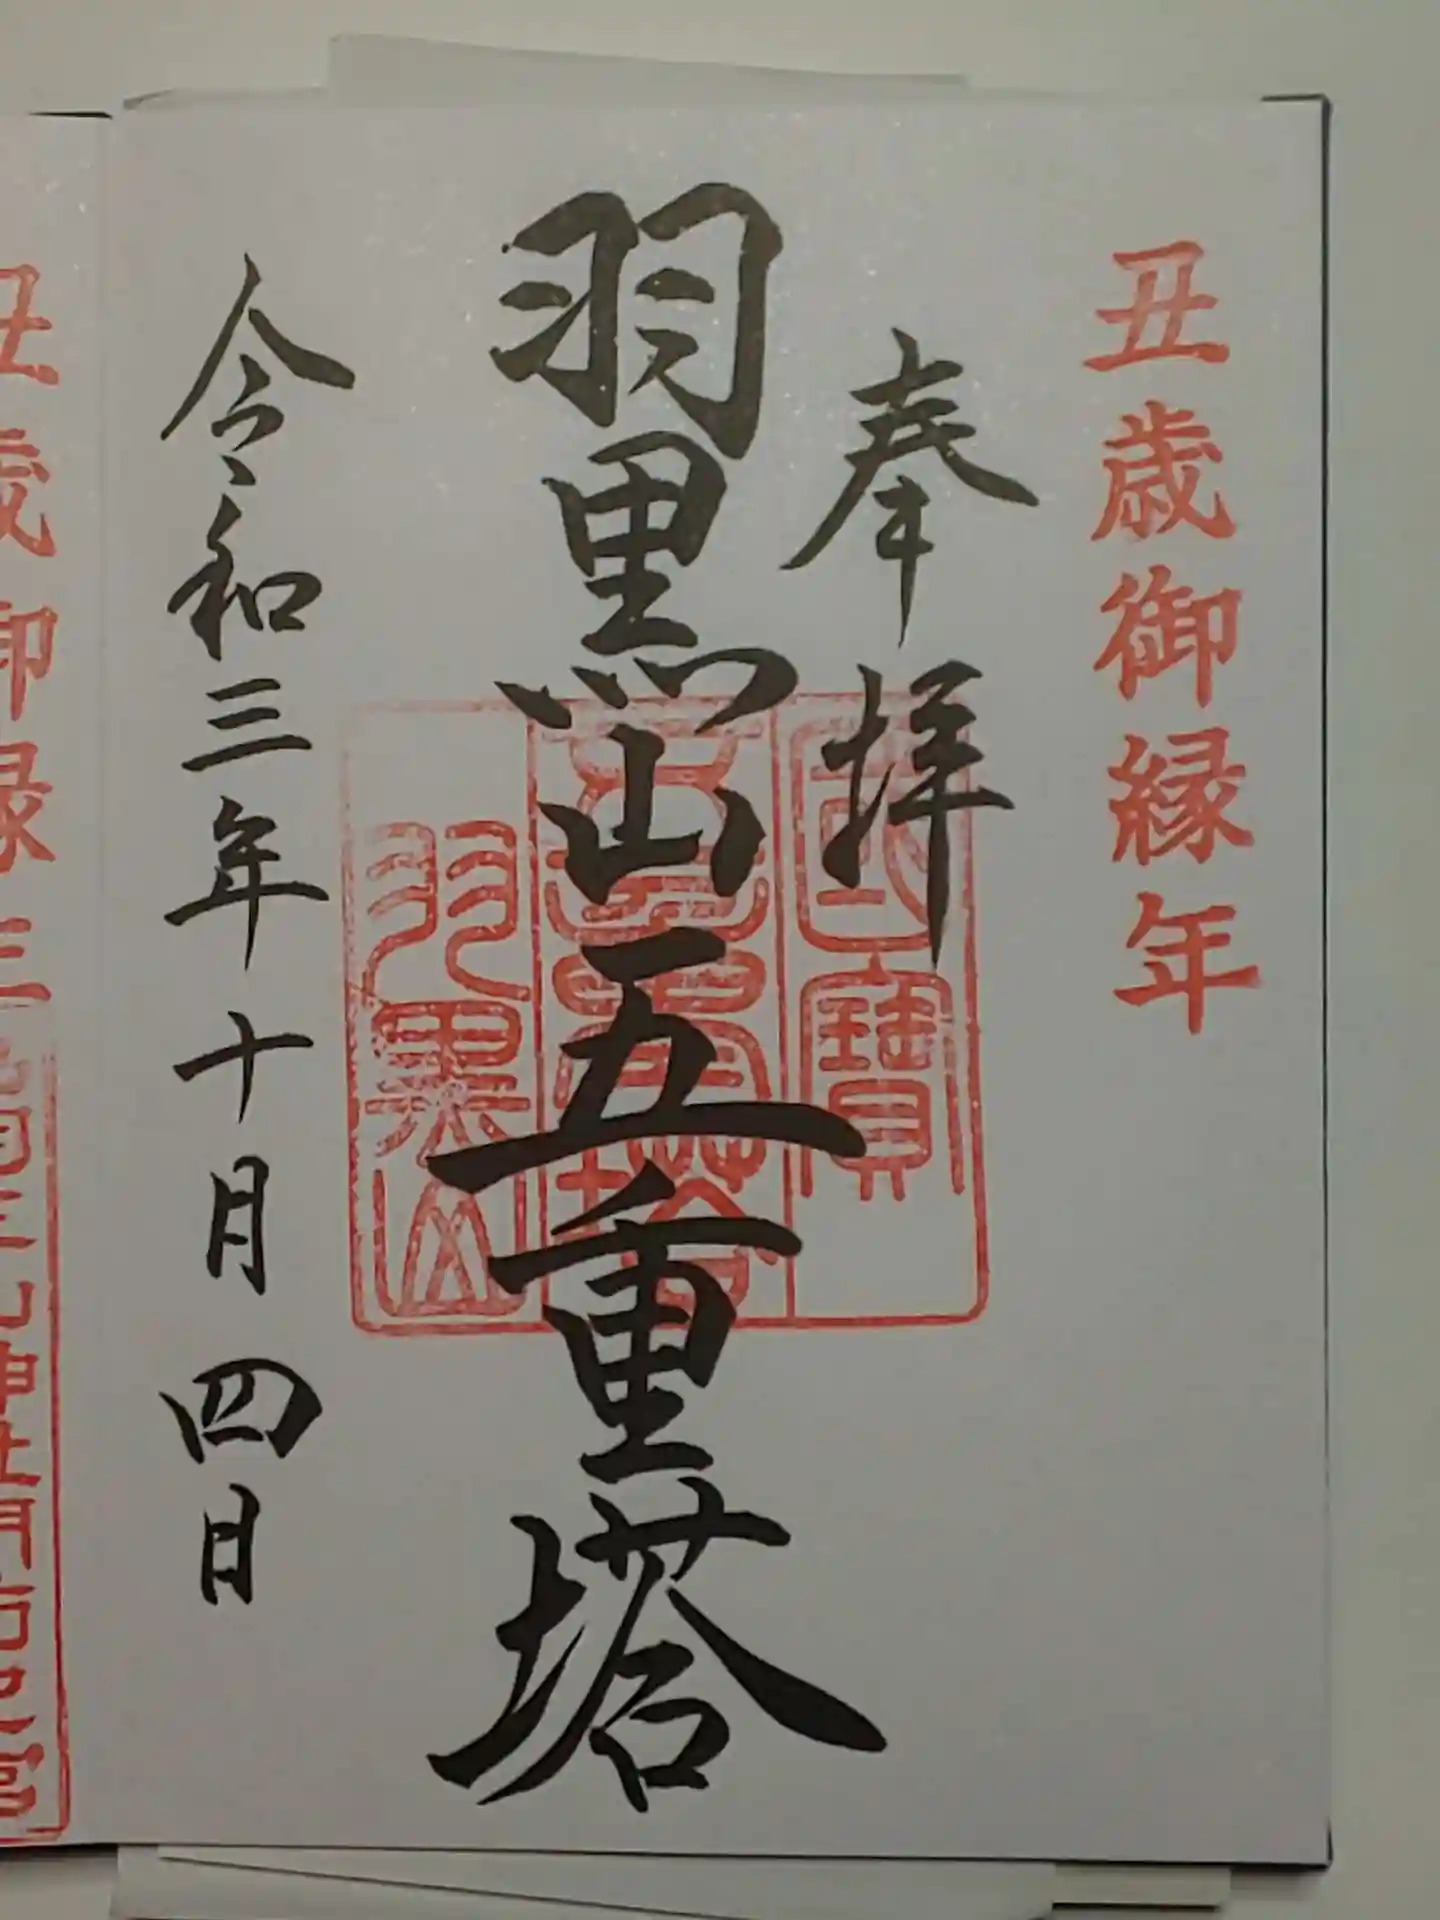 丑歳御縁年
奉拝
國寶
五重塔
羽黒山
羽黒山五重塔
令和三年十月四日
丑歳御縁年